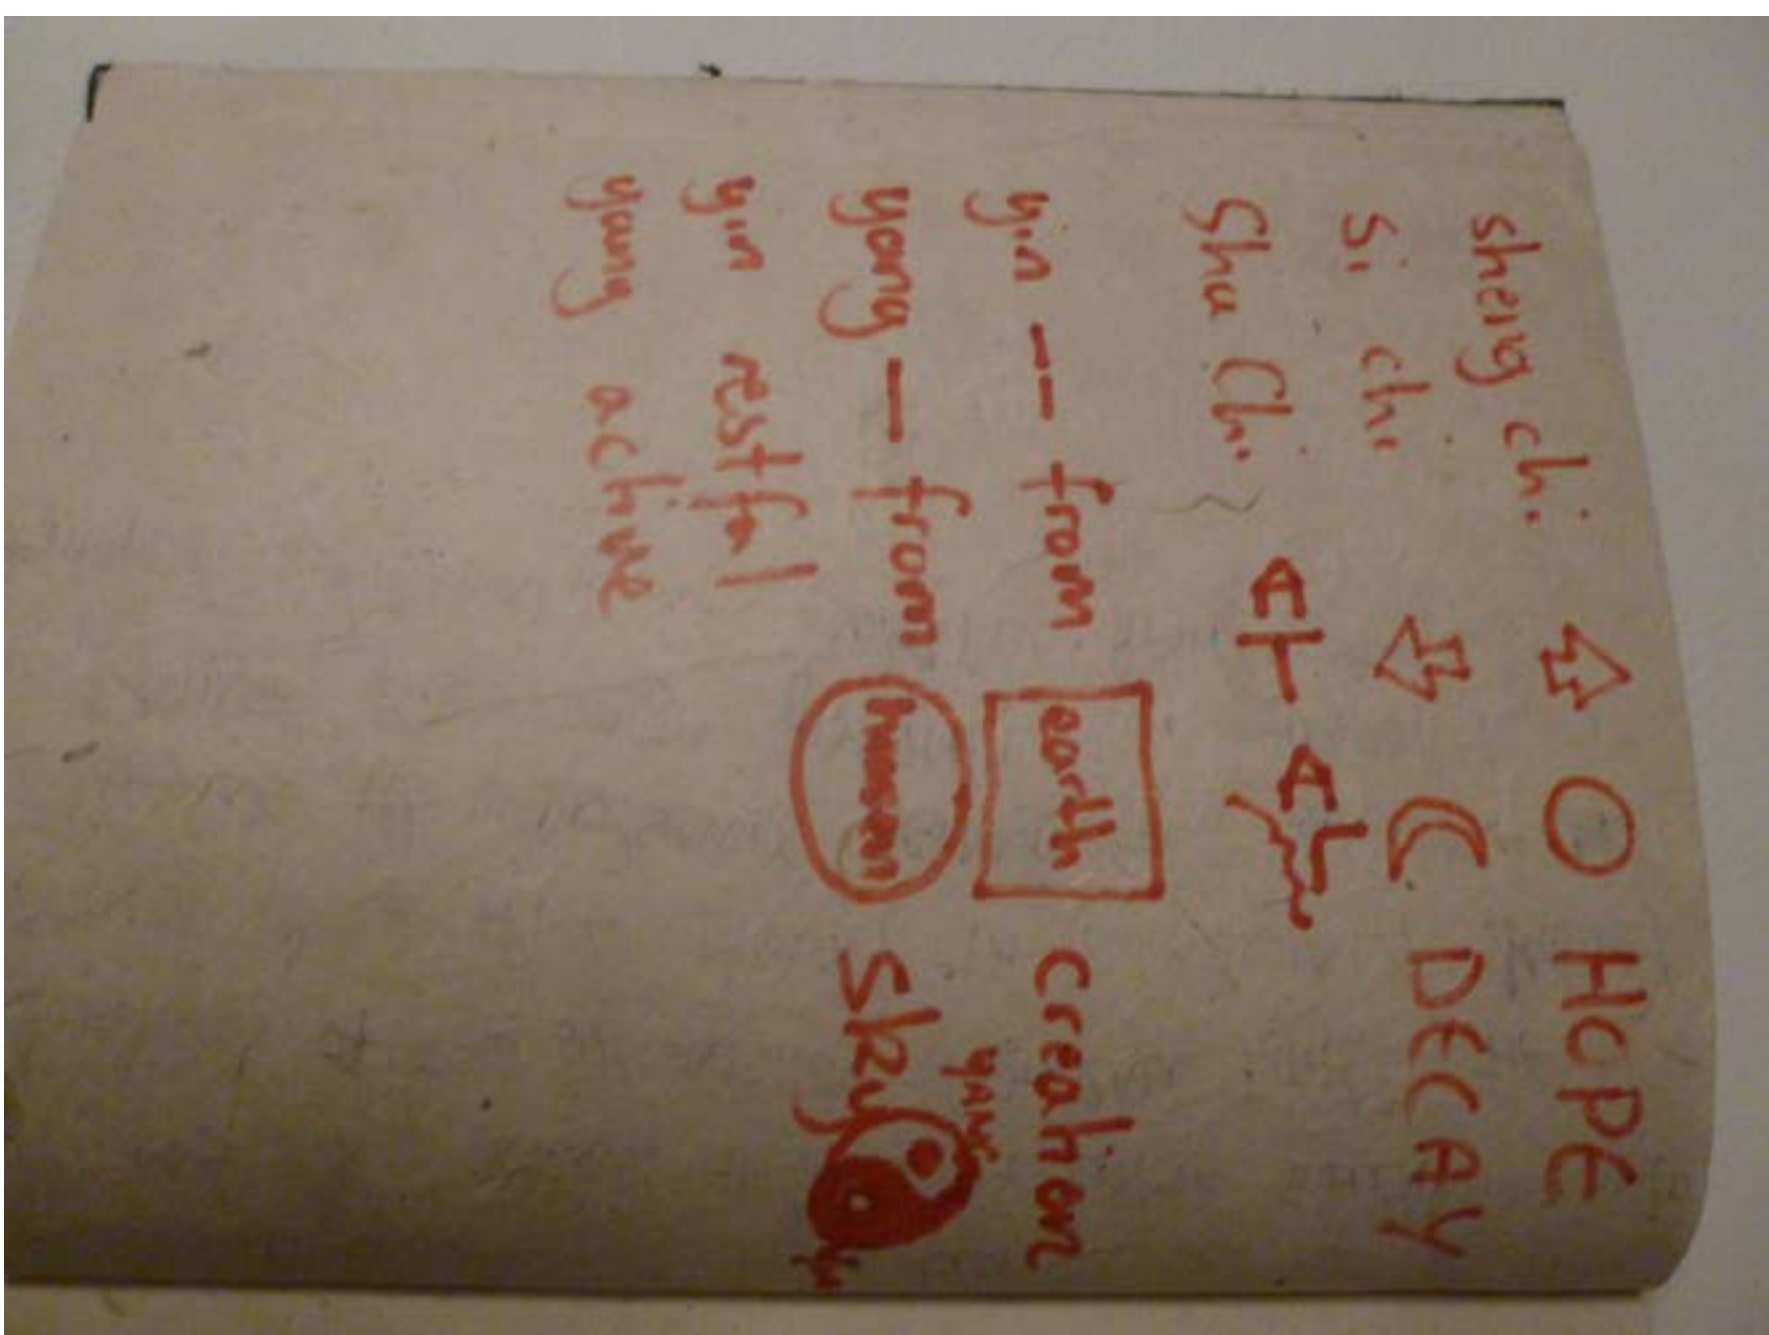 sheng chi HOPE
si chi DECAY
Sha Chi
yin -- from earth creation
yang — from human sky
YANG
yin restful
yang active